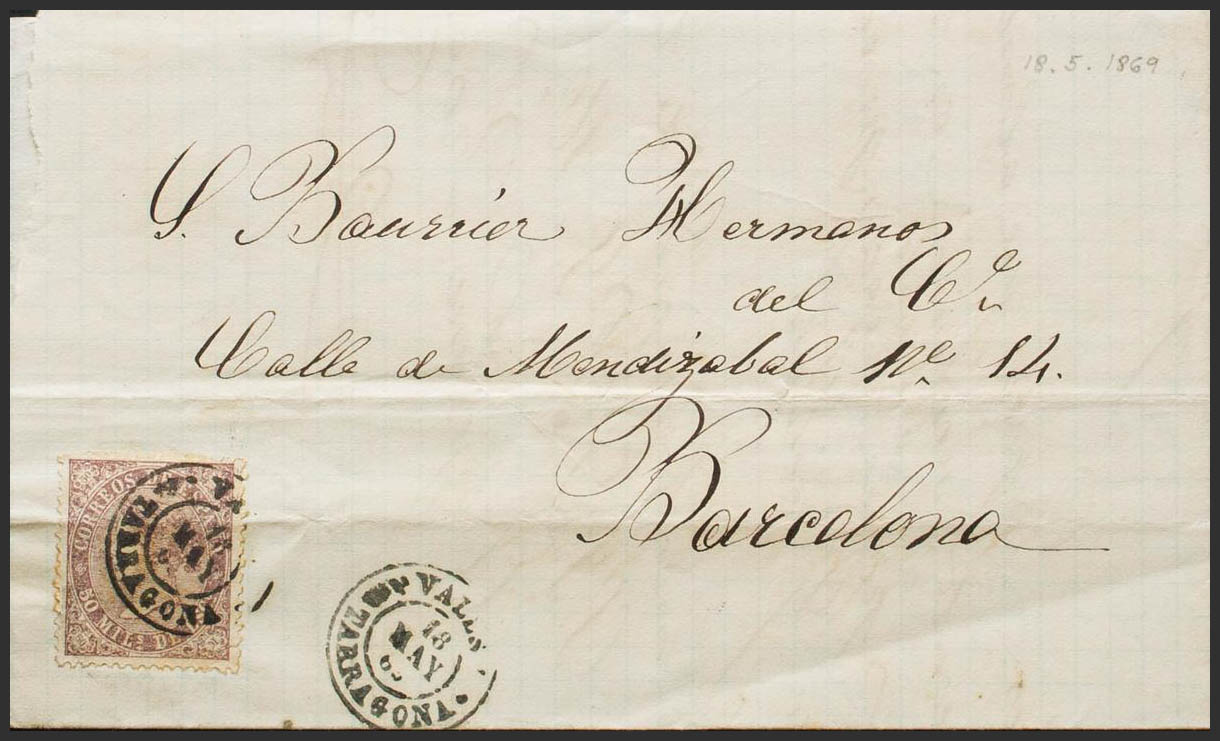 18.5.1869
S. Baurrier Hermanos
del Co.
Calle de Mendizabal No. 14.
Barcelona
CORREOS
50 MILS DE
TARRAGONA
18 MAY
VALLS
18
MAY
69
TARRAGONA